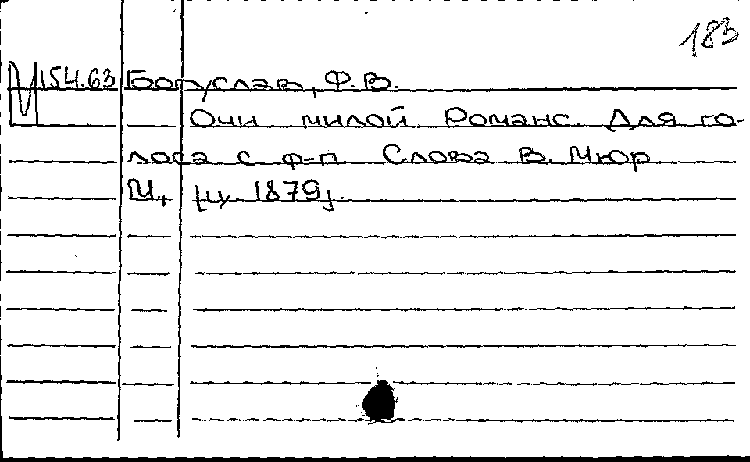 183
154.63 Богуслав, Ф. В.
Очи милой Романс. Для го-
лоса с ф-п Слова В. Мюр
М, [ц. 1879].